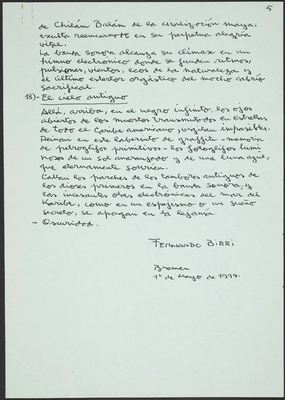 5
de Chilám Balám de la civilización maya,
exulta reencarnado en su perpetua alegría
vital.
La banda sonora alcanza su clímax en un
himno electrónico donde se funden ritmos,
pulsiones, vientos, ecos de la naturaleza y
el último estertor orgástico del macho cabrío
sacrifical.
18)- El cielo antiguo
Allá, arriba, en el negro infinito, los ojos
abiertos de los muertos transmutados en estrellas
de todo el Caribe americano, vigilan impasibles.
Reinan en este laberinto de graffiti-memoria
de petroglifos primitivos - los fotoglifos lumi
nosos de un sol anaranjado y de una luna azul,
que eternamente sonríen.
Callan los parches de los tambores antiguos de
los dioses primeros en la banda sonora, y
las incesantes olas electrónicas del mar del
Karibe, como en un espejismo o un sueño
secreto, se apagan en la lejanía.
- Oscuridad.
FERNANDO BIRRI
Bremen
1º de Mayo de 1994.